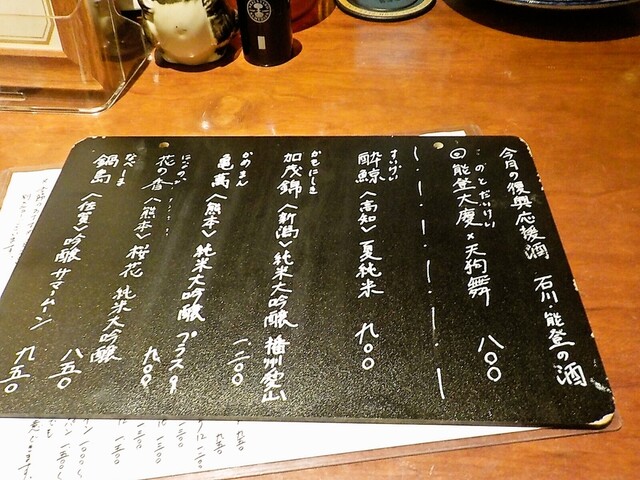 今月の復興応援酒 石川・能登の酒
のとだいけい
能登大慶×天狗舞 八〇〇
すいげい
酔鯨〈高知〉夏純米 九〇〇
かもにしき
加茂錦〈新潟〉純米大吟醸 播州愛山 一二〇〇
かめまん
亀萬〈熊本〉純米大吟醸 プラス9 九〇〇
はなのか
花の香〈熊本〉桜花 純米大吟醸 八五〇
なべしま
鍋島〈佐賀〉吟醸 サマームーン 九五〇